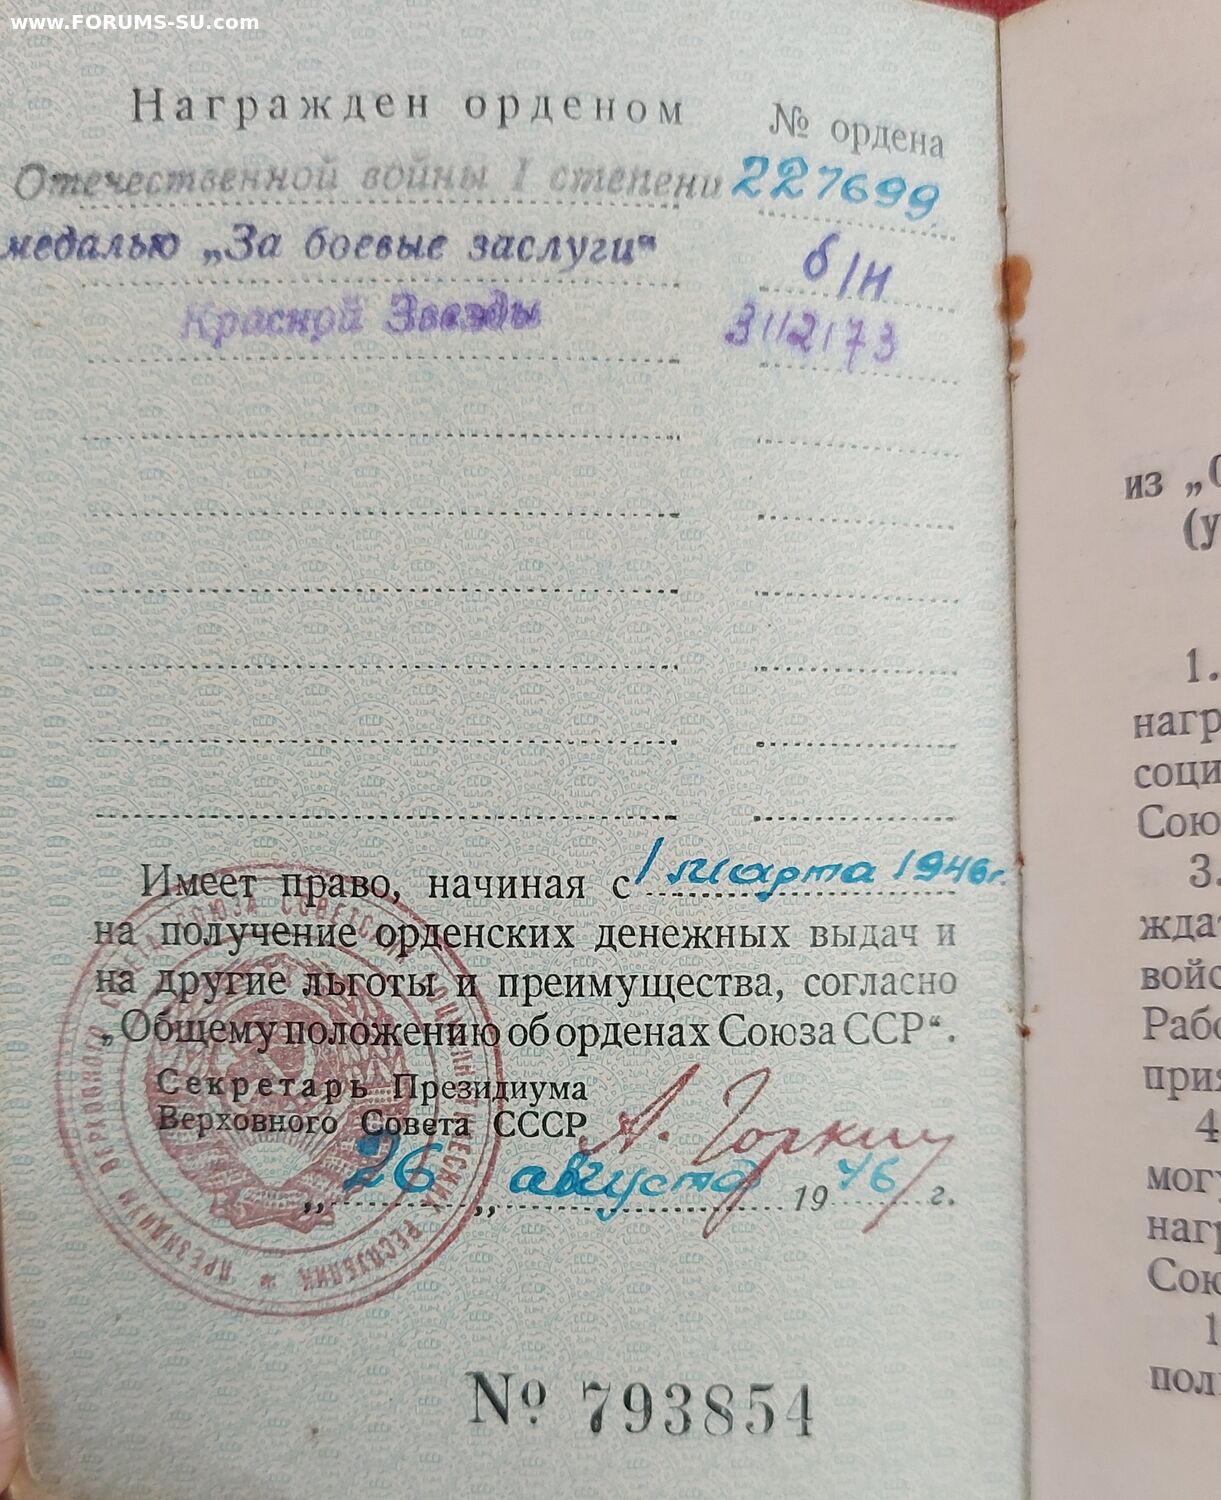 www.FORUMS-SU.com
Награжден орденом № ордена
Отечественной войны I степени 227699
медалью „За боевые заслуги" б/н
Красной Звезды 3112173
Имеет право, начиная с 1 марта 1946г.
на получение орденских денежных выдач и
на другие льготы и преимущества, согласно
„Общему положению об орденах Союза ССР“.
Секретарь Президиума
Верховного Совета СССР А. Горкин
„ 26 „ августа 1946 г.
ПРЕЗИДИУМ ВЕРХОВНОГО СОВЕТА СОЮЗА СОВЕТСКИХ СОЦИАЛИСТИЧЕСКИХ РЕСПУБЛИК
№ 793854
из „О
(у
1.
нагр
соци
Сою
3.
жда
войс
Рабо
прия
4
мог
наг
Сою
1
пол